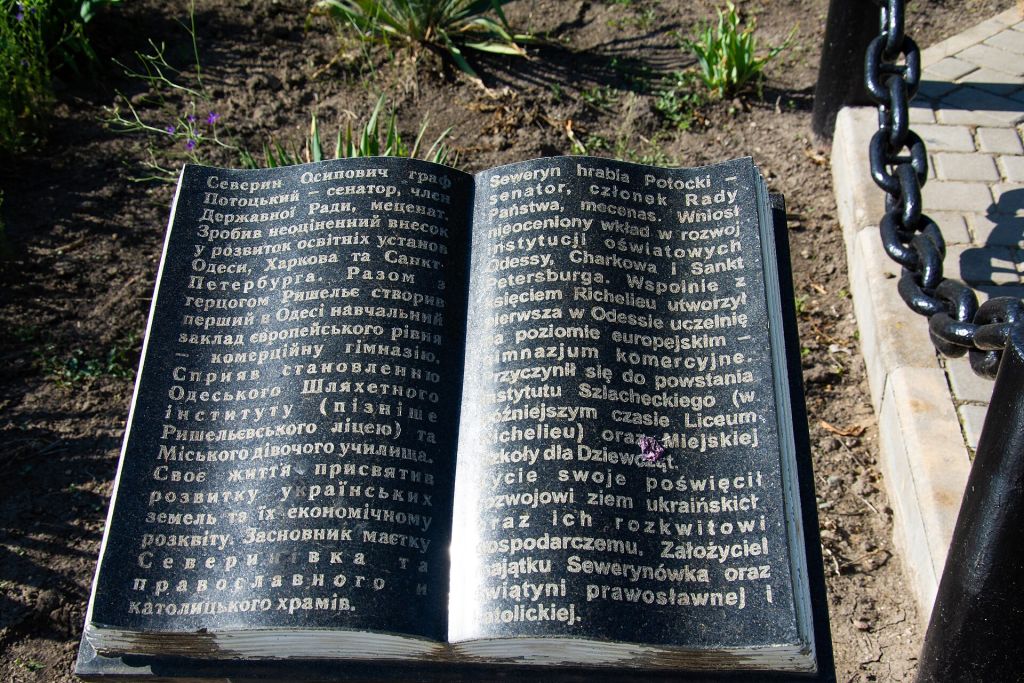 Северин Осипович граф
Потоцький – сенатор, член
Державної Ради, меценат.
Зробив неоціненний внесок
у розвиток освітніх установ
Одеси, Харкова та Санкт-
Петербурга. Разом з
герцогом Ришельє створив
перший в Одесі навчальний
заклад європейського рівня
– комерційну гімназію.
Сприяв становленню
Одеського Шляхетного
інституту (пізніше
Ришельєвського ліцею) та
Міського дівочого училища.
Своє життя присвятив
розвитку українських
земель та їх економічному
розквіту. Засновник маєтку
та
православного и
католицького храмів.
Seweryn hrabia Potocki –
senator, członek Rady
Państwa, mecenas. Wniósł
nieoceniony wkład w rozwoj
instytucji oświatowych
Odessy, Charkowa i Sankt
Petersburga. Wspolnie z
księciem Richelieu utworzył
pierwsza w Odessie uczelnię
na poziomie europejskim –
gimnazjum komercyjne.
Przyczynił się do powstania
Instytutu Szlacheckiego (w
późniejszym czasie Liceum
Richelieu) oraz Miejskiej
Szkoły dla Dziewcząt.
Życie swoje poświęcił
rozwojowi ziem ukraińskich
oraz ich rozkwitowi
gospodarczemu. Założyciel
majątku Sewerynówka oraz
świątyni prawosławnej i
katolickiej.